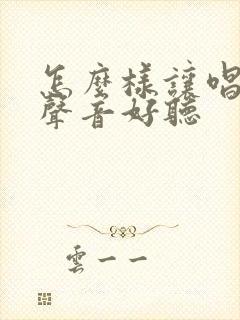 怎麼樣讓唱
聲音好聽
雲一一